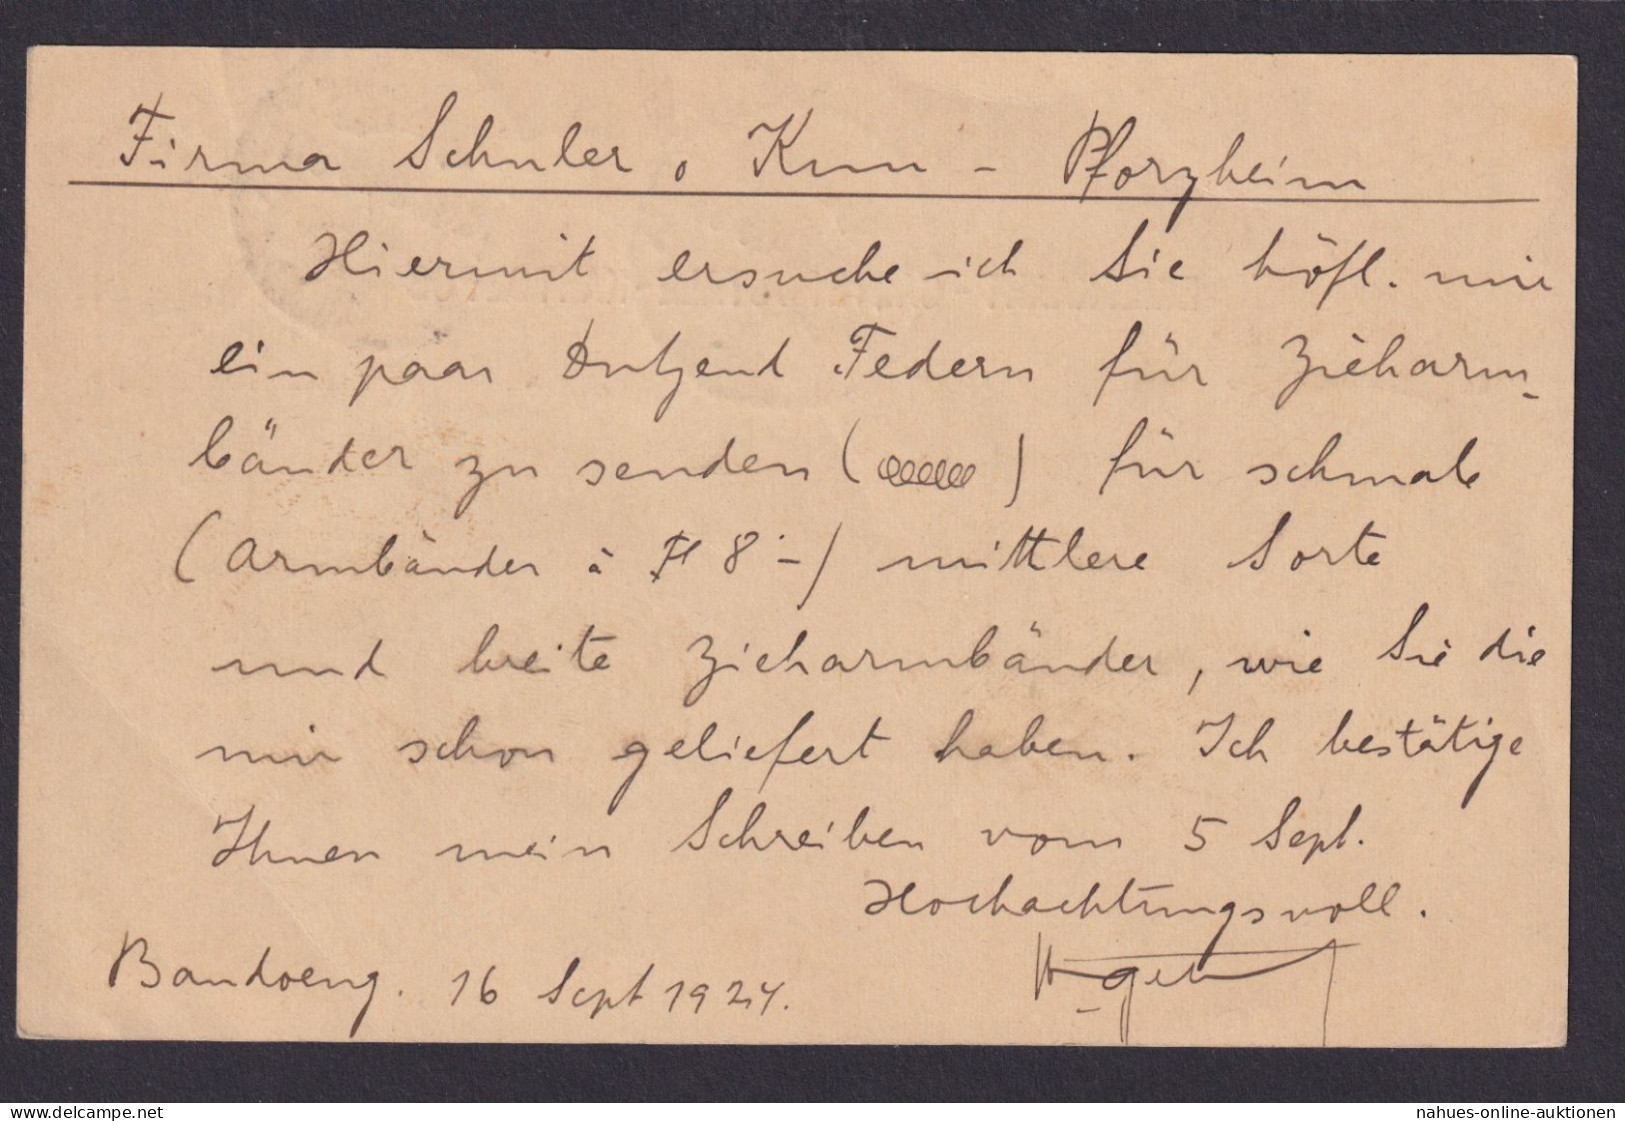 Firma Schuler & Kun - Pforzheim
Hiermit ersuche ich Sie höfl. mir
ein paar Dutzend Federn für Zieharm-
bänder zu senden ( ) für schmale
(Armbänder à Fl 8.-) mittlere Sorte
und breite Zieharmbänder, wie Sie die
mir schon geliefert haben. Ich bestätige
Ihnen mein Schreiben vom 5 Sept.
Hochachtungsvoll.
Bandoeng. 16 Sept 1924.
delcampe.net
nahues-online-auktionen